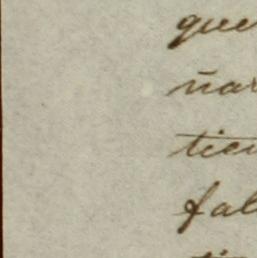 que
ñar
tien
fal